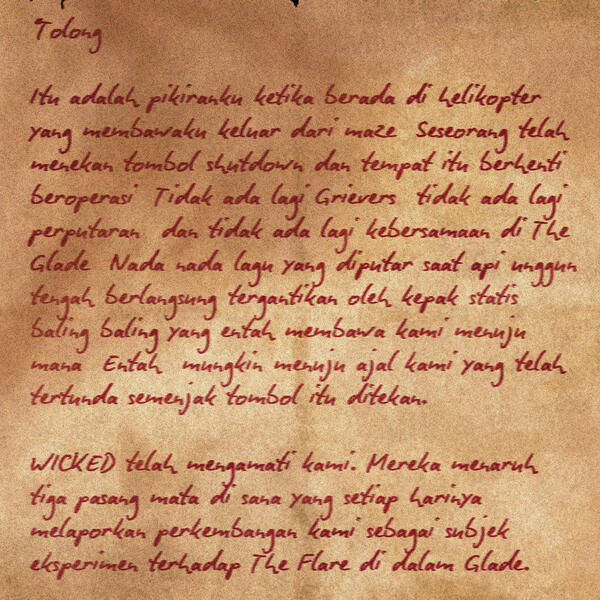 "Tolong
Itu adalah pikiranku ketika berada di helikopter
yang membawaku keluar dari maze Seseorang telah
menekan tombol shutdown dan tempat itu berhenti
beroperasi Tidak ada lagi Grievers tidak ada lagi
perputaran dan tidak ada lagi kebersamaan di The
Glade Nada nada lagu yang diputar saat api unggun
tengah berlangsung tergantikan oleh kepak statis
baling baling yang entah membawa kami menuju
mana Entah mungkin menuju ajal kami yang telah
tertunda semenjak tombol itu ditekan.
WICKED telah mengamati kami. Mereka menaruh
tiga pasang mata di sana yang setiap harinya
melaporkan perkembangan kami sebagai subjek
eksperimen terhadap The Flare di dalam Glade.